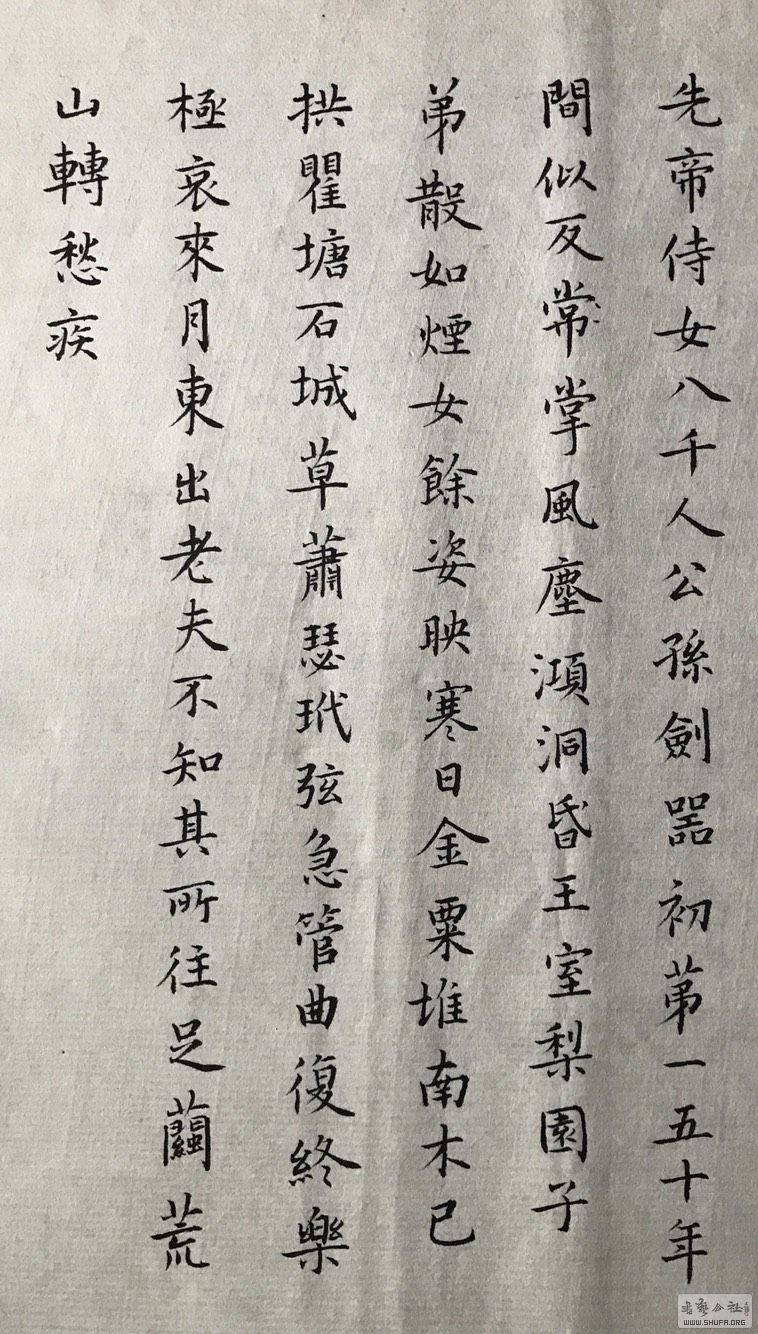 先帝侍女八千人公孫劍器初苐一五十年
間似反常掌風塵澒洞昏王室梨園子
弟散如煙女餘姿映寒日金粟堆南木已
拱瞿塘石城草蕭瑟玳弦急管曲復終樂
極哀來月東出老夫不知其所往足繭荒
山轉愁疾
WWW.SHUFA.ORG